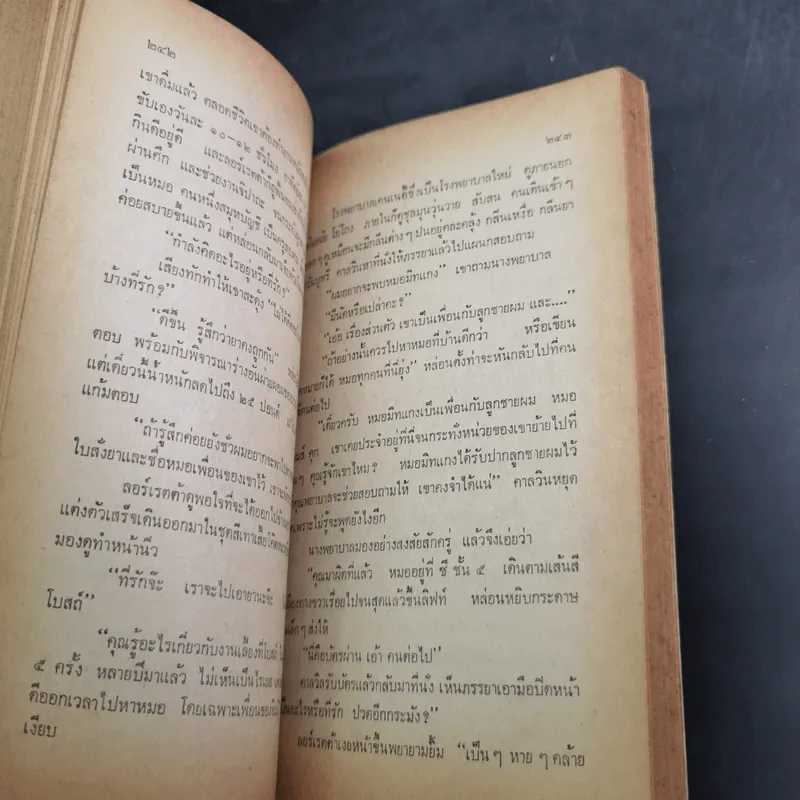 ๒๔๒
เขาดื่มแล้ว ตลอดชีวิตเขาต้อง
ขับเองวันละ ๑๐–๑๒ ชั่วโมง
กินดีอยู่ดี และลอร์เรตต้าก็
ผ่านศึก และช่วยงานจิปาถะ
เป็นหมอ คนหนึ่งสมุหบัญชี
ค่อยสบายขึ้นแล้ว แต่หล่อนกลับมา
“กำลังคิดอะไรอยู่หรือที่รัก?”
เสียงทักทำให้เขาสะดุ้ง
บ้างที่รัก?”
“ดีขึ้น รู้สึกว่ายาคงถูกกัน”
ตอบ พร้อมกับพิจารณาร่างอัน
แต่เดี๋ยวนี้น้ำหนักลดไปถึง ๒๕ ปอนด์
แก้มตอบ
“ถ้ารู้สึกค่อยยังชั่วผมอยากจะพา
ใบสั่งยาและชื่อหมอเพื่อนของเขาไว้
ลอร์เรตต้าดูพอใจที่จะได้ออกไป
แต่งตัวเสร็จเดินออกมาในชุดสีเทา
มองดูทำหน้านิ่ว
“ที่รักจ๊ะ เราจะไปเอายานะจ๊ะ
โบสถ์”
“คุณรู้อะไรเกี่ยวกับงานเลี้ยงที่โบสถ์
๕ ครั้ง หลายปีมาแล้ว ไม่เห็นเป็นไรเลย
คือออกเวลาไปหาหมอ โดยเฉพาะเพื่อนของ
เงียบ
๒๔๓
โรงพยาบาลเคนเนดี้ซึ่งเป็นโรงพยาบาลใหม่ ดูภายนอก
โอ่โถง ภายในก็ดูชุลมุนวุ่นวาย สับสน คนเดินเข้า ๆ
ๆ ดูเหมือนจะมีกลิ่นต่าง ๆ ปนอยู่คละคลุ้ง กลิ่นเหงื่อ กลิ่นยา
คาลวินหาที่นั่งให้ภรรยาแล้วไปแผนกสอบถาม
“ผมอยากจะพบหมอมิทแกง” เขาถามนางพยาบาล
“มีนัดหรือเปล่าคะ?”
“เอ้อ เรื่องส่วนตัว เขาเป็นเพื่อนกับลูกชายผม และ....”
“ถ้าอย่างนั้นควรไปหาหมอที่บ้านดีกว่า หรือเขียน
หมายก็ได้ หมอทุกคนที่นี่ยุ่ง” หล่อนตั้งท่าจะหันกลับไปที่คน
ต่อไป
“เดี๋ยวครับ หมอมิทแกงเป็นเพื่อนกับลูกชายผม หมอ
คุก เขาเคยประจำอยู่ที่นี่จนกระทั่งหน่วยของเขาย้ายไปที่
ๆ คุณรู้จักเขาไหม? หมอมิทแกงได้รับปากลูกชายผมไว้
คุณพยาบาลจะช่วยสอบถามให้ เขาคงจำได้แน่” คาลวินหยุด
เพราะไม่รู้จะพูดยังไงอีก
นางพยาบาลมองอย่างสงสัยสักครู่ แล้วจึงเอ่ยว่า
“คุณมาผิดที่แล้ว หมออยู่ที่ ซี ชั้น ๕ เดินตามเส้นสี
ทางขวาเรื่อยไปจนสุดแล้วขึ้นลิฟท์ หล่อนหยิบกระดาษ
เล็ก ๆ ส่งให้
“นี่คือบัตรผ่าน เอ้า คนต่อไป”
คาลวินรับบัตรแล้วกลับมาที่นั่ง เห็นภรรยาเอามือปิดหน้า
เป็นอะไรหรือที่รัก ปวดอีกกระมัง?”
ลอร์เรตต้าเงยหน้าขึ้นพยายามยิ้ม “เป็น ๆ หาย ๆ คล้าย